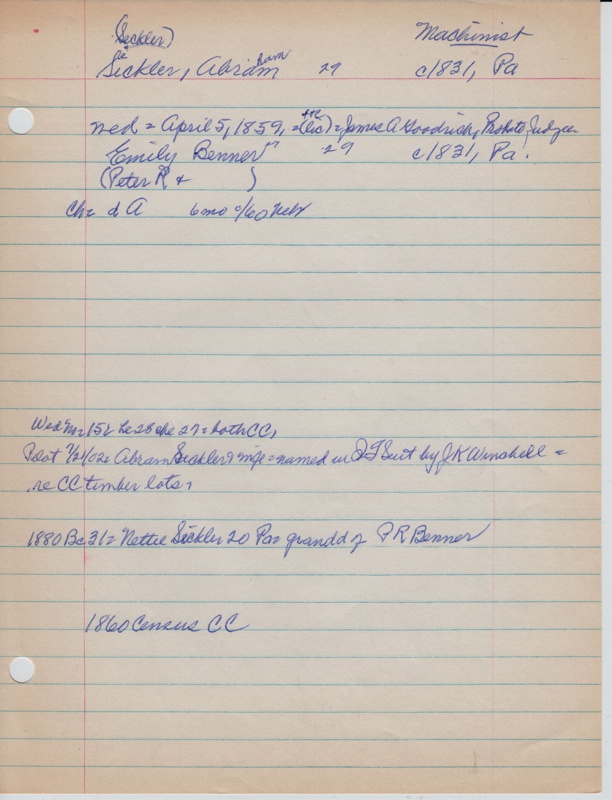 (Seckler) Machinist
Sickler, Abram ham 29 c1831, Pa
wed = April 5, 1859, = (Lic) = James A Goodrich, Probate Judge =
Emily Benner 29 c1831, Pa.
(Peter R + )
Ch = d A 6 mo c/60 Nebr
Wed no 152 he 28 she 27 = both CC,
Abram Sickler & wife = named in Suit by J K Winchell =
re CC timber lots,
1880 Bc 31 = Nettie Sickler 20 Pa = grandd of P R Benner
1860 Census CC